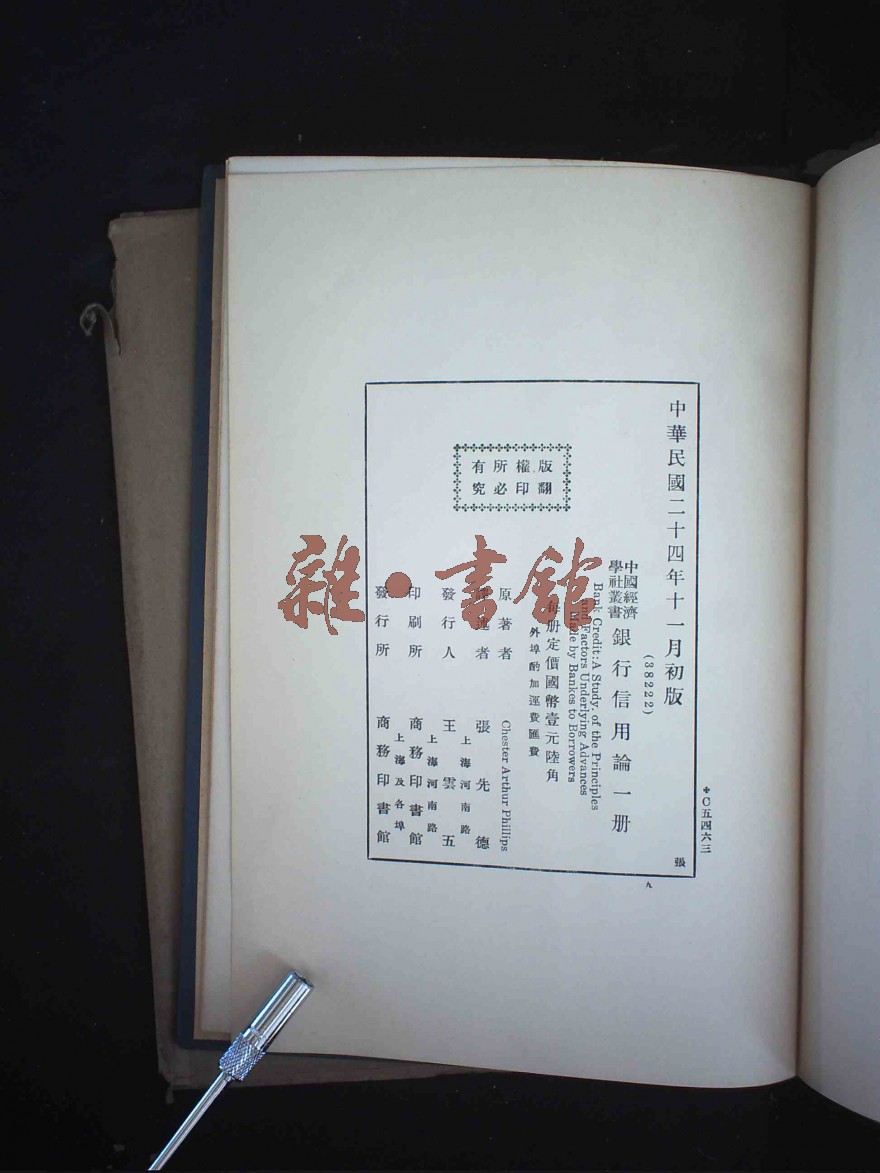 中華民國二十四年十一月初版
(38222)
中國經濟
學社叢書
銀行信用論一册
Bank Credit: A Study, of the Principles
and Factors Underlying Advances
Made by Bankes to Borrowers
每册定價國幣壹元陸角
外埠酌加運費匯費
原著者 Chester Arthur Phillips
譯述者 張先德
上海河南路
發行人 王雲五
上海河南路
印刷所 商務印書館
上海及各埠
發行所 商務印書館
版權所有
翻印必究
✤C五四六三
張
九
雜·書館